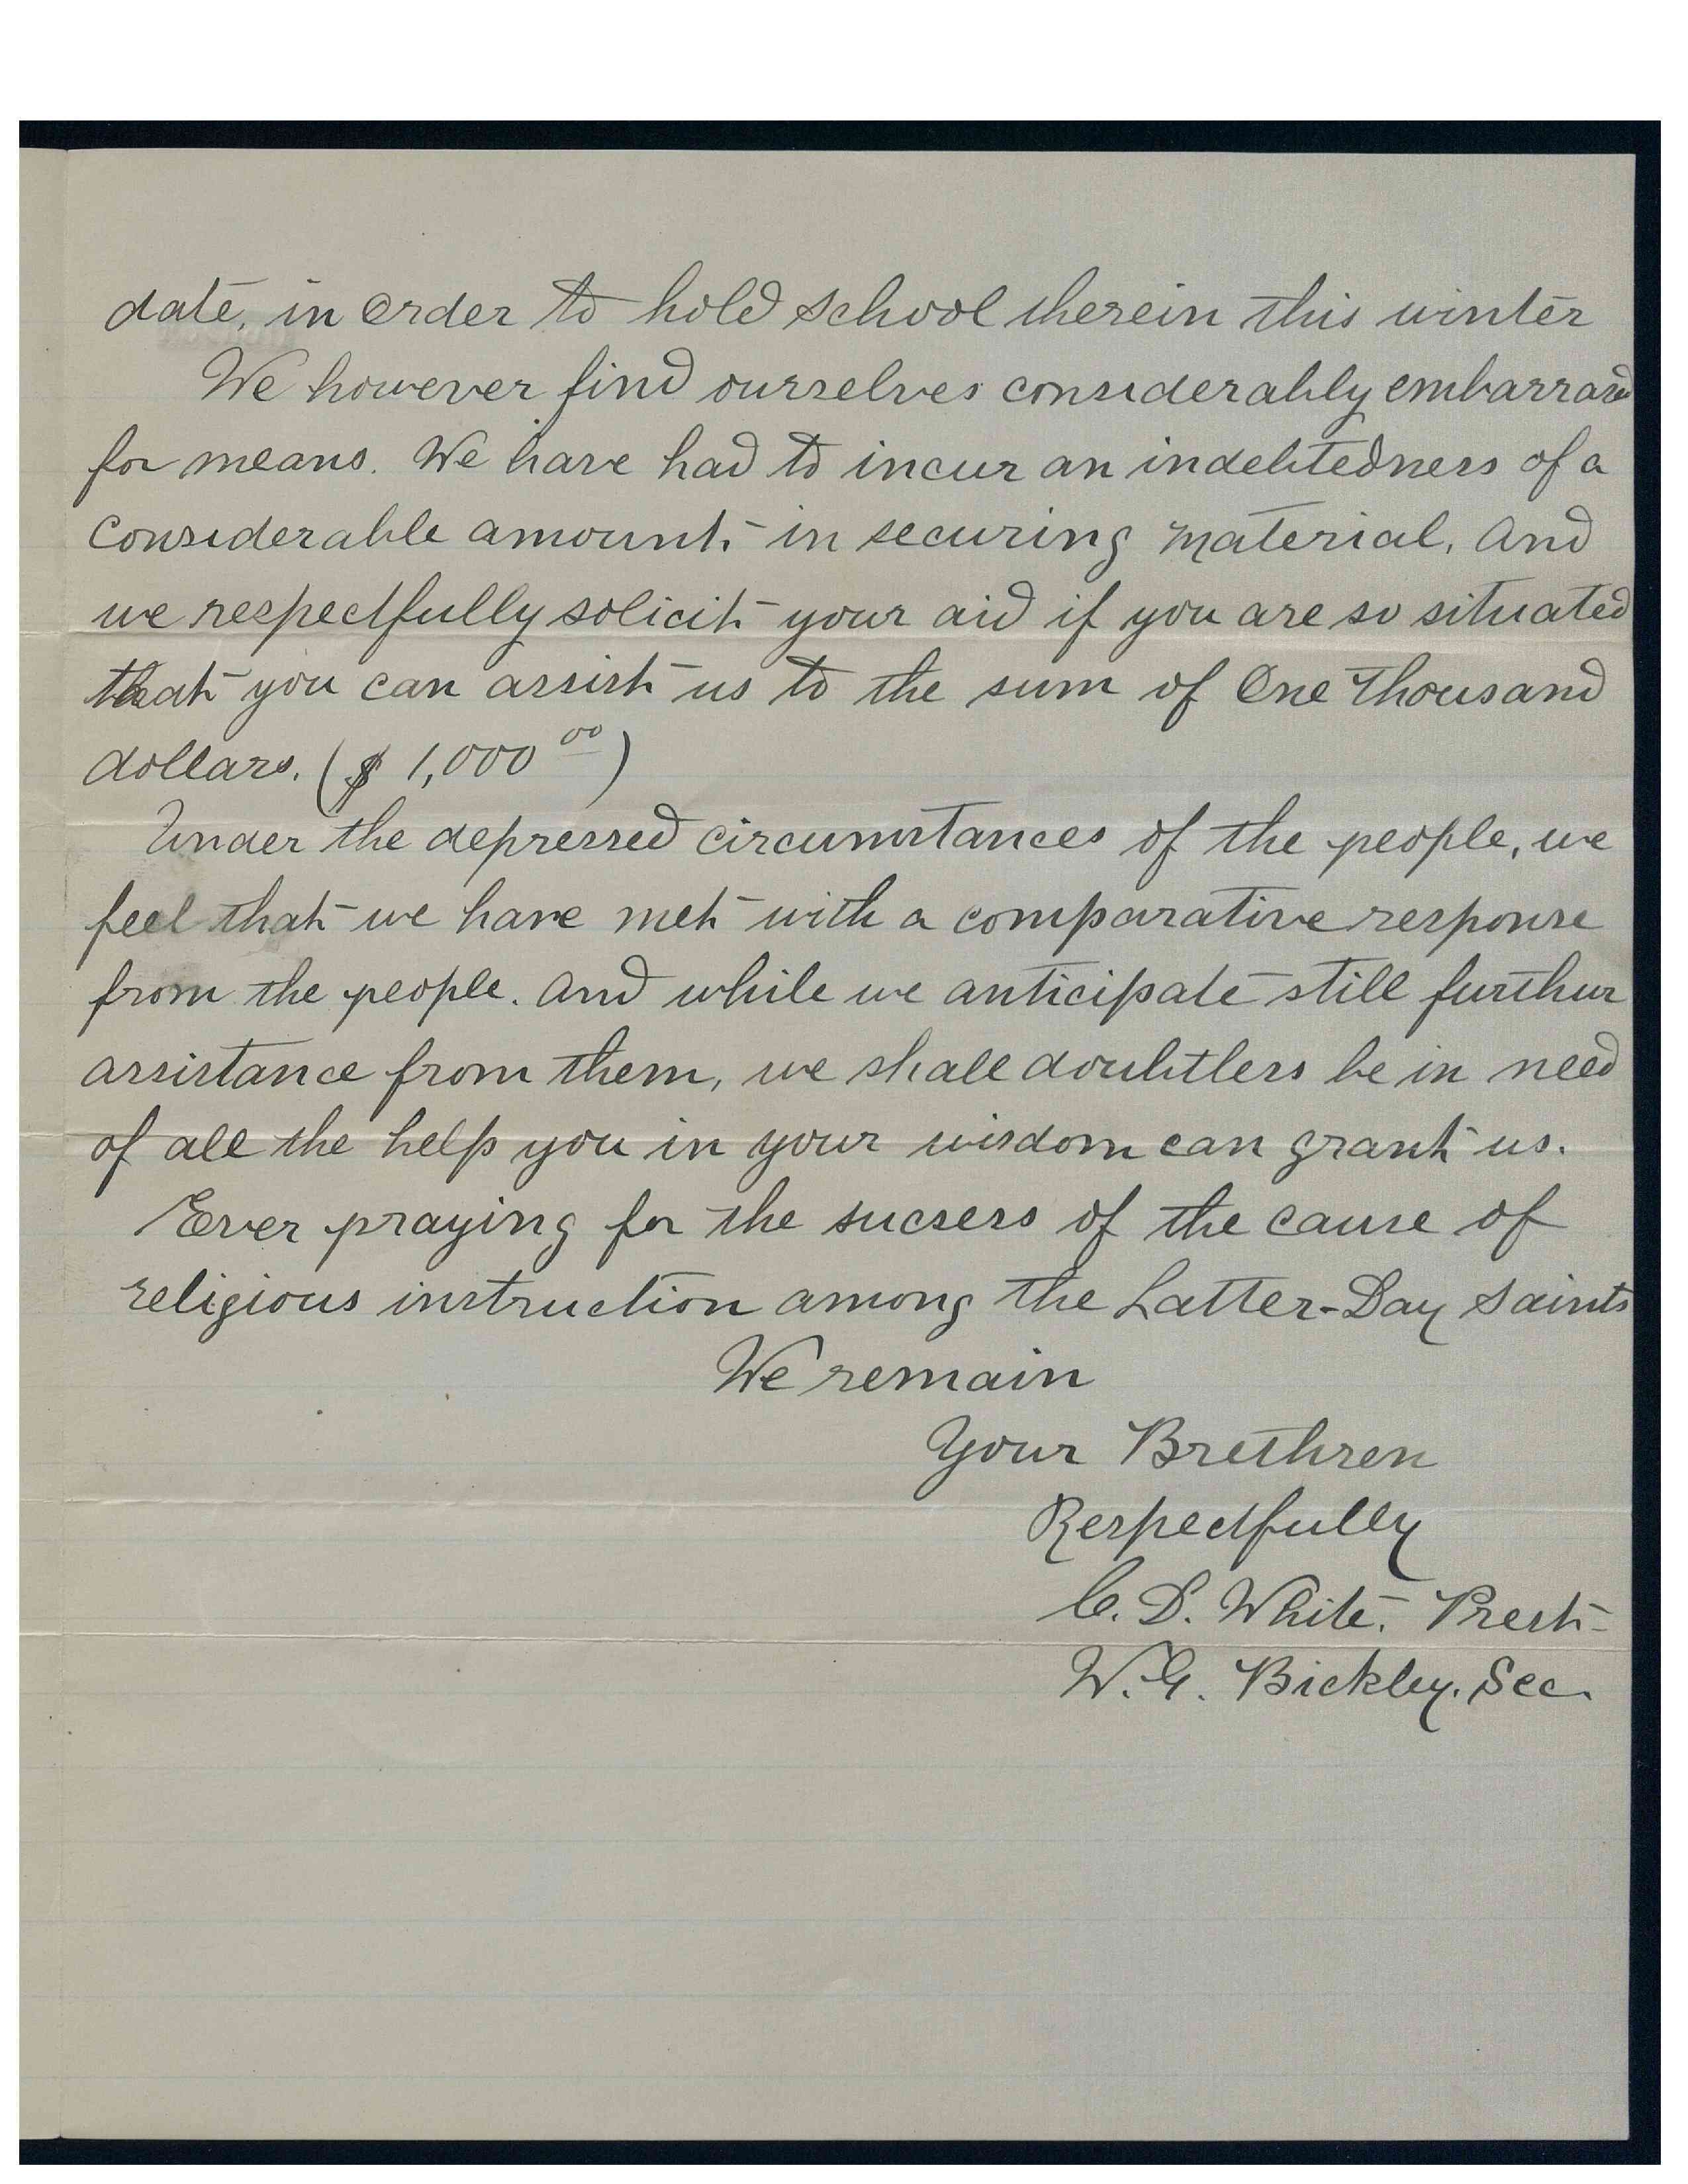 date, in order to hold school therein this winter
We however find ourselves considerably embarrased
for means. We have had to incur an indebtedness of a
considerable amount in securing material. And
we respectfully solicit your aid if you are so situated
that you can assist us to the sum of One Thousand
dollars. ($ 1,000 00)
Under the depressed circumstances of the people, we
feel that we have met with a comparative response
from the people. And while we anticipate still furthur
assistance from them, we shall doubtless be in need
of all the help you in your wisdom can grant us.
Ever praying for the sucsess of the cause of
religious instruction among the Latter-Day Saints
We remain
Your Brethren
Respectfully
C. D. White. Prest
W. G. Bickley. Sec.